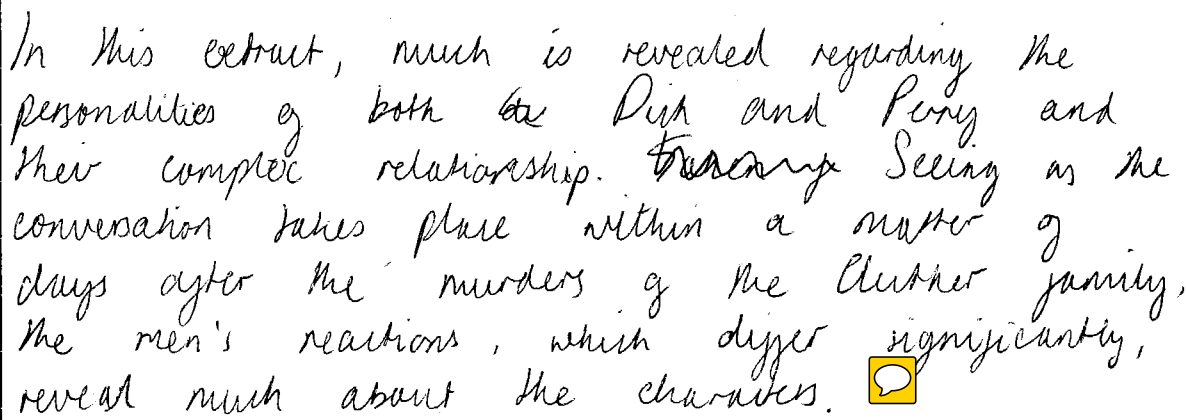 In this extract, much is revealed regarding the
personalities of both Dick and Perry and
their complex relationship. Seeing as the
conversation takes place within a matter of
days after the murders of the Clutter family,
the men's reactions, which differ significantly,
reveal much about the characters.